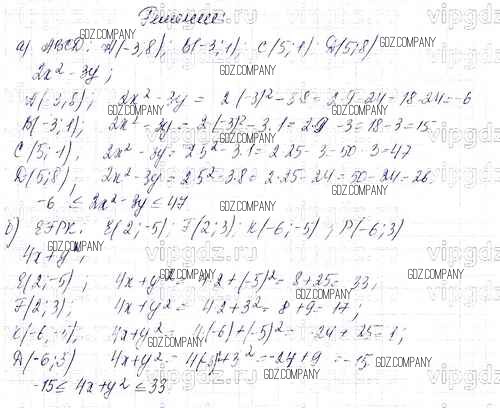 Решение:
а) ABCD: A(-3,8); B(-3;1); C(5;1) D(5;8)
2x² - 3y;
A(-3,8); 2x² - 3y = 2(-3)² - 3·8 = 2·9 - 24 = 18 - 24 = -6
B(-3;1); 2x² - 3y = 2(-3)² - 3·1 = 2·9 - 3 = 18 - 3 = 15
C(5;1), 2x² - 3y = 2·5² - 3·1 = 2·25 - 3 = 50 - 3 = 47
D(5;8), 2x² - 3y = 2·5² - 3·8 = 2·25 - 24 = 50 - 24 = 26
-6 ≤ 2x² - 3y ≤ 47
б) EFPK: E(2;-5); F(2;3); K(-6;-5); P(-6;3)
4x + y²;
E(2;-5); 4x + y² = 4·2 + (-5)² = 8 + 25 = 33,
F(2;3); 4x + y² = 4·2 + 3² = 8 + 9 = 17;
K(-6,-5); 4x + y² = 4(-6) + (-5)² = -24 + 25 = 1;
(-6;3) 4x + y² = 3² = -24 + 9 = -15
-15 ≤ 4x + y² ≤ 33
GDZ.COMPANY
vipgdz.ru